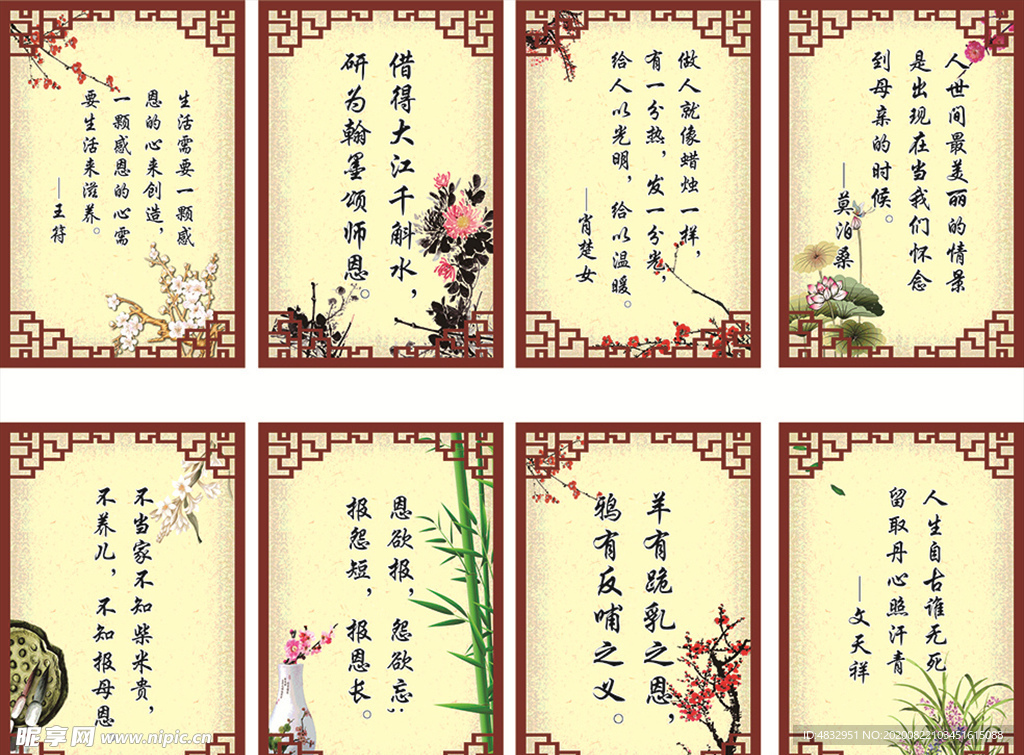 生活需要一颗感
恩的心来创造，
一颗感恩的心需
要生活来滋养。
——王符
借得大江千斛水，
研为翰墨颂师恩。
做人就像蜡烛一样，
有一分热，发一分光，
给人以光明，给以温暖。
——肖楚女
人世间最美丽的情景
是出现在当我们怀念
到母亲的时候。
——莫泊桑
不当家不知柴米贵，
不养儿，不知报母恩
恩欲报，怨欲忘；
报怨短，报恩长。
羊有跪乳之恩，
鸦有反哺之义。
人生自古谁无死
留取丹心照汗青
——文天祥
昵享网 www.nipic.cn
ID:4832951 NO:20200822103451615088